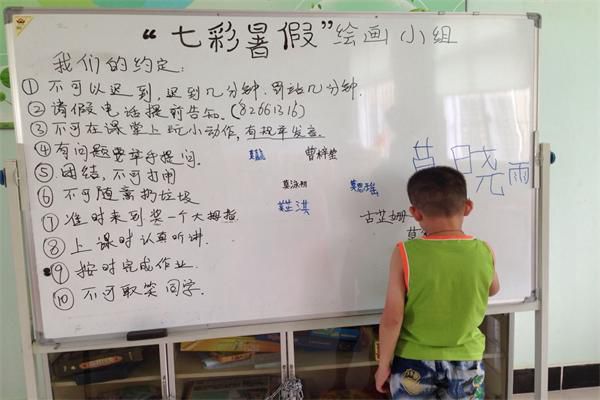 “七彩暑假”绘画小组
我们的约定:
① 不可以迟到,迟到几分钟,罚站几分钟.
② 请假电话提前告知。(82661316)
③ 不可在课堂上玩小动作,有规举发言.
④ 有问题要举手提问。
⑤ 团结,不可打闹
⑥ 不可随意扔垃圾
⑦ 准时来到奖一个大拇指
⑧ 上课时认真听讲.
⑨ 按时完成作业.
⑩ 不可取笑同学.
曹梓莹
莫晓雨
古芷姗
莫